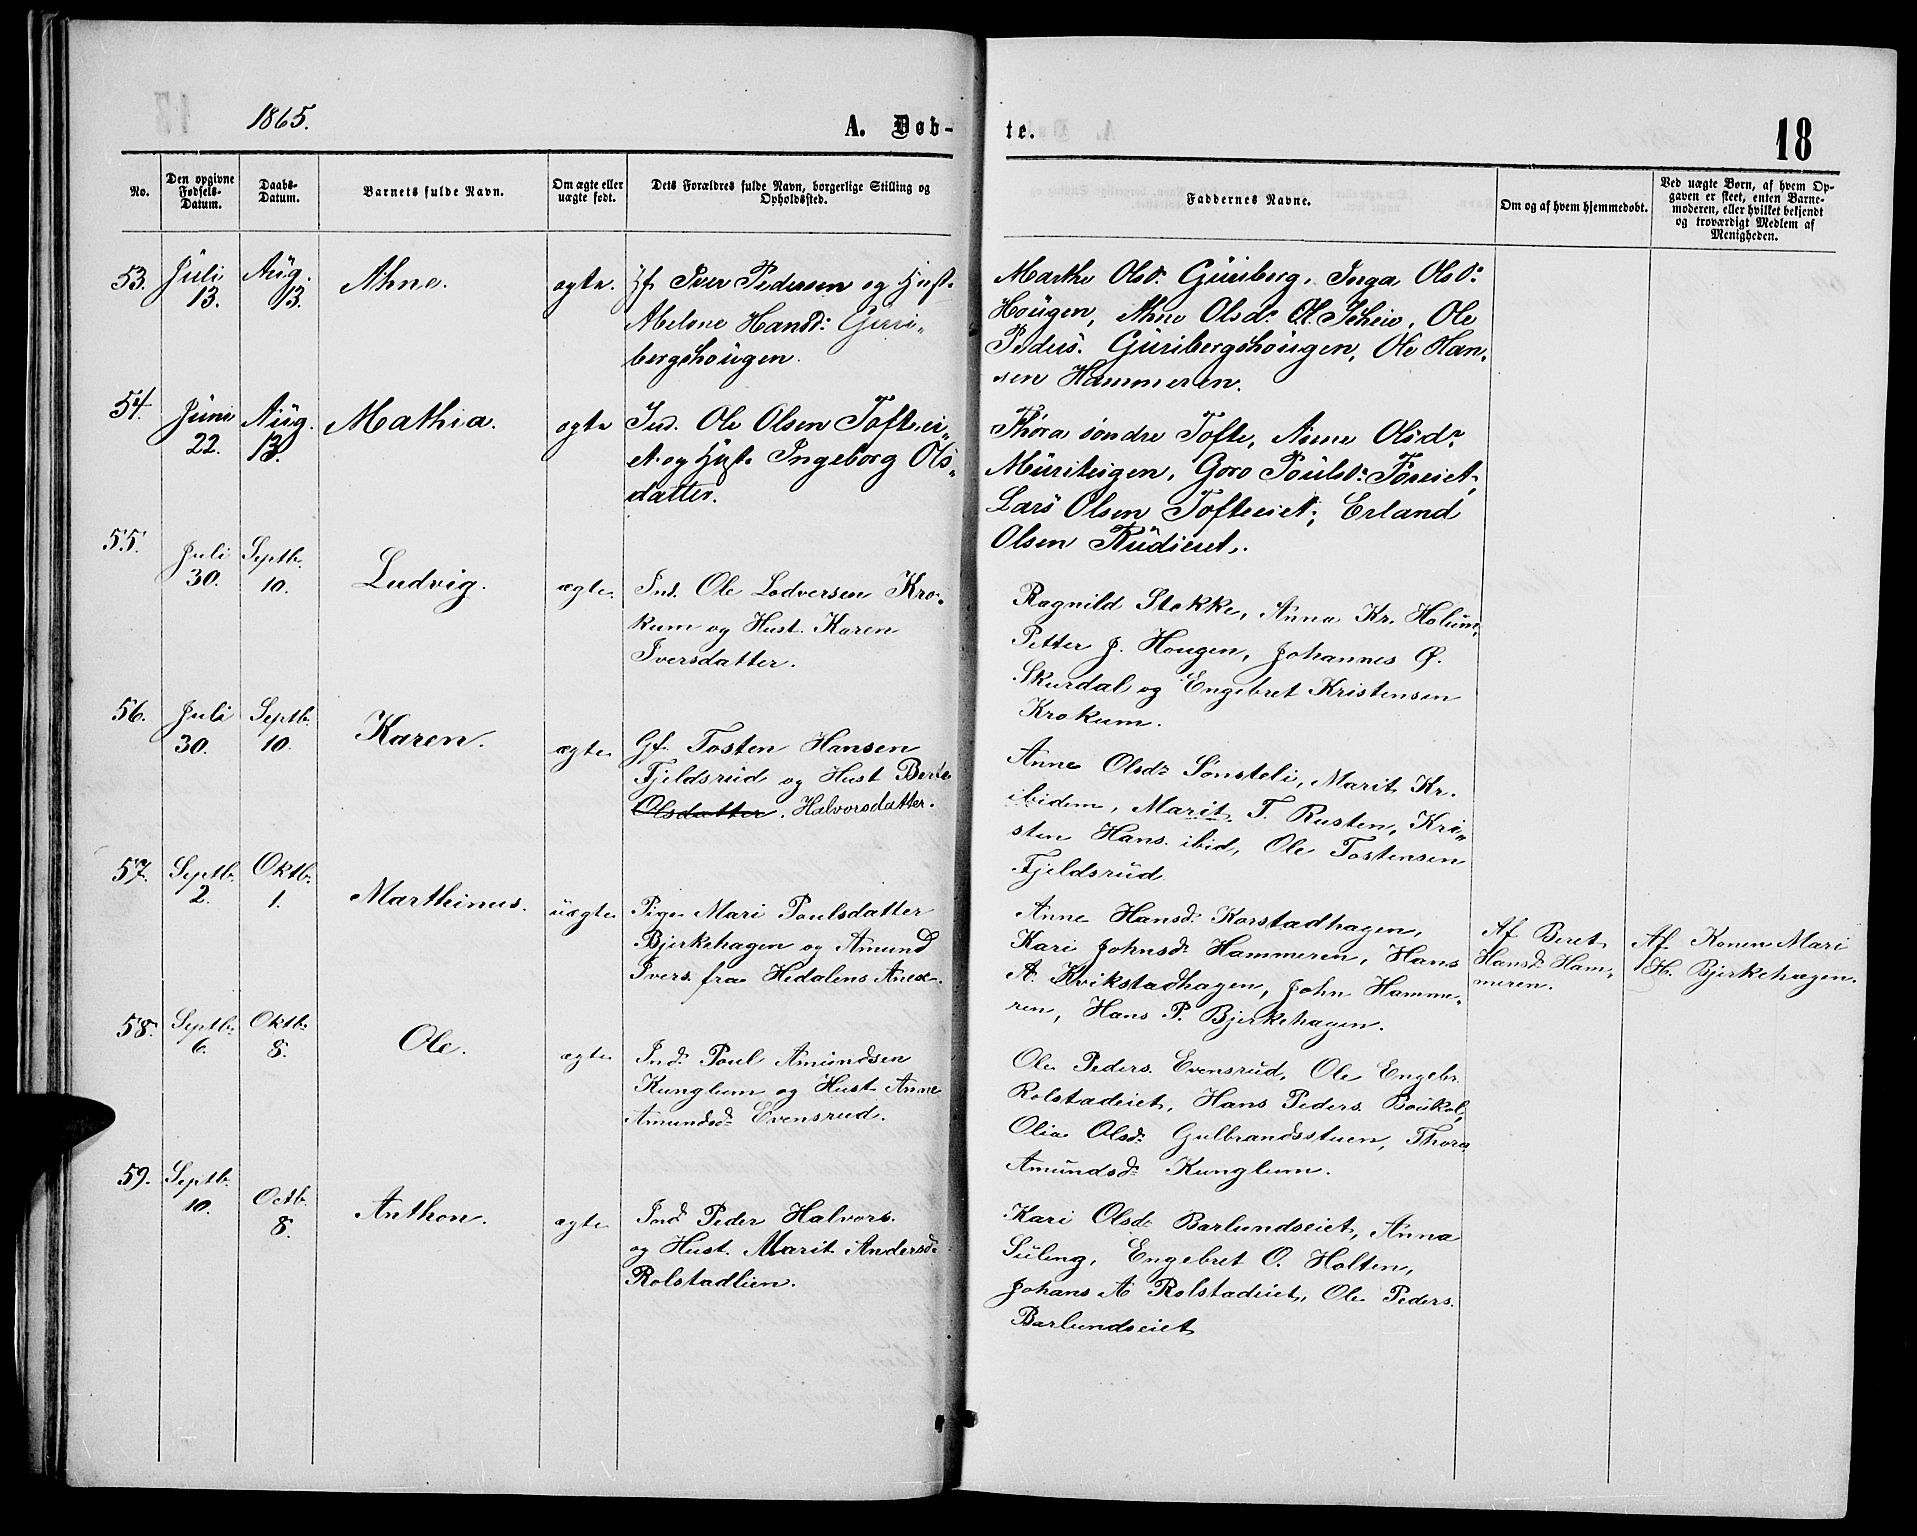 1865.
A. Døb-
te.
18
No.
Den opgivne
Fødsels-
Datum.
Daabs-
Datum.
Barnets fulde Navn.
Om ægte eller
uægte født.
Dets Forældres fulde Navn, borgerlige Stilling og
Opholdssted.
Faddernes Navne.
Om og af hvem hjemmedøbt.
Ved uægte Børn, af hvem Op-
gaven er skeet, enten Barne-
moderen, eller hvilket bekjendt
og troværdigt Medlem af
Menigheden.
53.
Juli
13.
Aug.
13.
Ahne.
ægte.
Gf. Iver Pedersen og Hust.
Abelone Hansd: Guri-
bergshougen.
Marthe Olsd: Guriberg, Inga Olsd:
Hougen, Ahne Olsd: Ol. Ieheie, Ole
Peders. Guribergshougen, Ole Han-
sen Hammeren.
54.
Juni
22.
Aug.
13.
Mathia.
ægte
Ind. Ole Olsen Toftei-
et og Hust. Ingeborg Ols-
datter.
Thora søndre Tofte, Anne Olsd:
Muriteigen, Goro Poulsd:
Lars Olsen Tofteeiet, Erland
Olsen Rudieiet.
55.
Juli
30.
Septb.
10.
Ludvig.
ægte.
Ind. Ole Lodversen Kro-
kum og Hust. Karen
Iversdatter.
Ragnild Stokke, Anna Kr. Holum,
Petter J. Hougen, Johannes Ø.
Skurdal og Engebret Kristensen
Krokum.
56.
Juli
30.
Septb.
10.
Karen.
ægte
Gf. Tosten Hansen
Fjeldsrud og Hust Berte
Olsdatter. Halvorsdatter.
Anne Olsd: Sønsteli, Marit Kr.
ibidem, Marit T. Rusten, Kri-
sten Hans. ibid, Ole Tostensen
Fjeldsrud
57.
Septb.
2.
Oktb.
1.
Marthinus.
uægte
Pige Mari Poulsdatter
Bjerkehagen og Amund
Ivers. fra Hedalens Anex.
Anne Hansd: Korstadhagen,
Kari Johnsd: Hammeren, Hans
A. Kvikstadhagen, John Hamme-
ren, Hans P. Bjerkehagen.
Af Beret
Hansd: Ham-
meren.
Af Konen Mari
H. Bjerkehagen.
58.
Septb.
6.
Oktb.
8.
Ole.
ægte
Ind: Poul Amundsen
Kunglum og Hust. Anne
Amundsd: Evensrud.
Ole Peders. Evensrud, Ole Engebr.
Rolstadeiet, Hans Peders. Boukol,
Olia Olsd: Gulbrandsstuen, Thora
Amundsd: Kunglum.
59.
Septb.
10.
Octb.
8.
Anthon.
ægte
Ind: Peder Halvors.
og Hust. Marit Andersd:
Rolstadlien.
Kari Olsd: Barlundseiet, Anna
Suleng, Engebret O. Holten,
Johans A Rolstadeiet, Ole Peders.
Barlundseiet